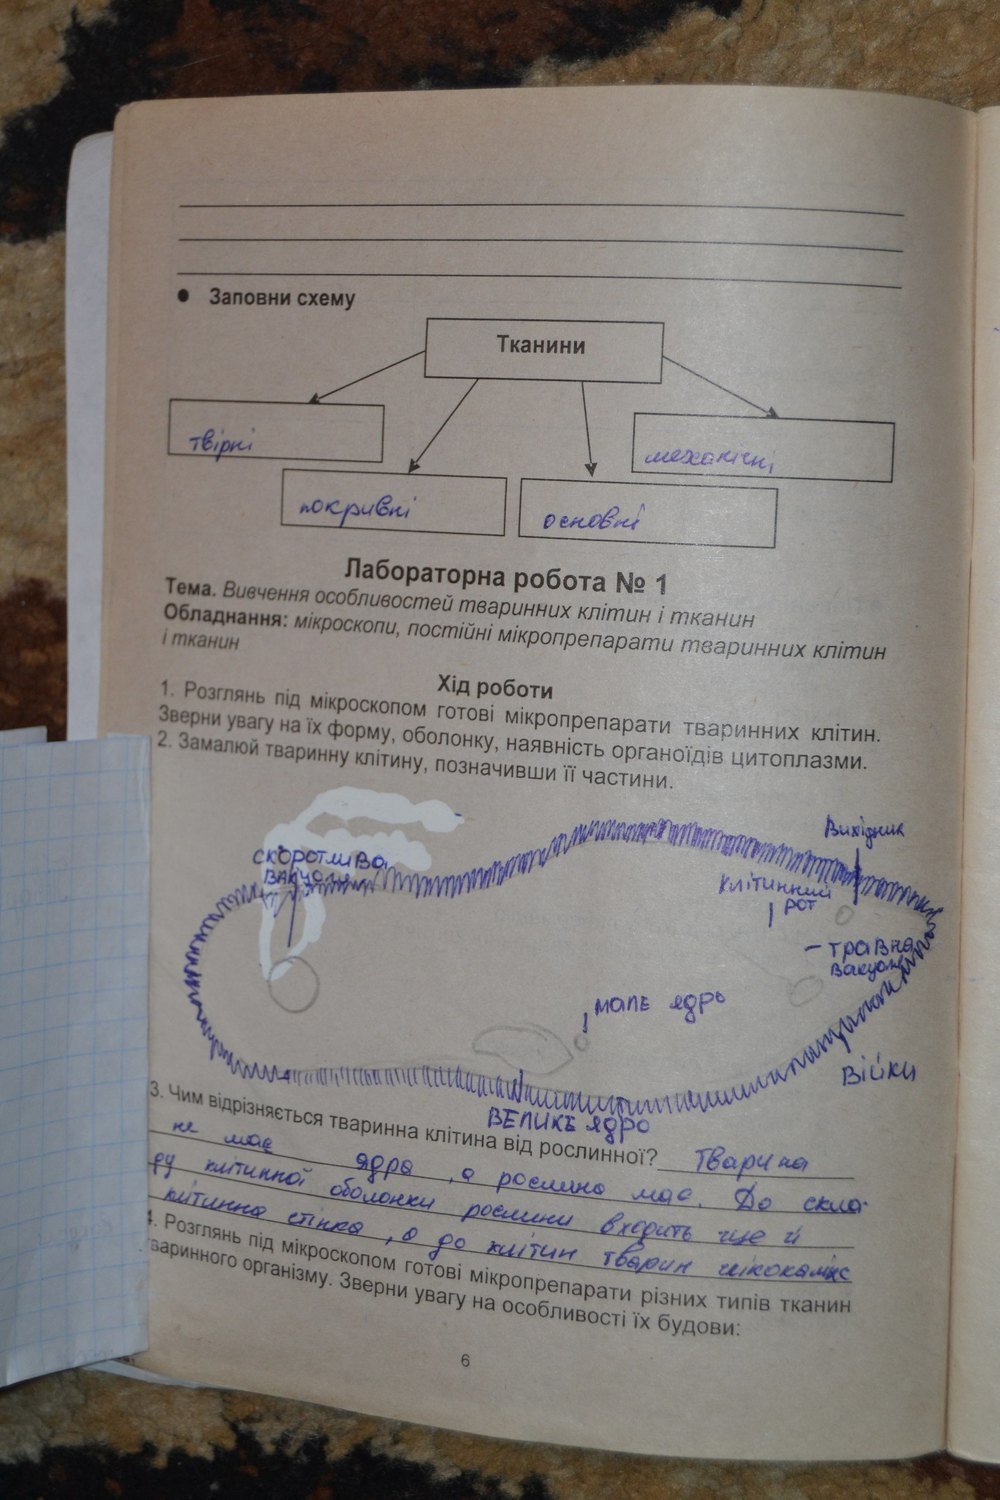 • Заповни схему
Тканини
твірні
механічні
покривні
основні
Лабораторна робота № 1
Тема. Вивчення особливостей тваринних клітин і тканин
Обладнання: мікроскопи, постійні мікропрепарати тваринних клітин
і тканин
Хід роботи
1. Розглянь під мікроскопом готові мікропрепарати тваринних клітин.
Зверни увагу на їх форму, оболонку, наявність органоїдів цитоплазми.
2. Замалюй тваринну клітину, позначивши її частини.
Вихідник
скоротлива
вакуоля
клітинний
рот
травна
вакуоля
мале ядро
війки
ВЕЛИКЕ ЯДРО
3. Чим відрізняється тваринна клітина від рослинної? Тварина
не має ядра, а рослина має. До скла-
ду клітинної оболонки рослини входить ще й
клітинна стінка, а до клітин тварин глікокалікс
4. Розглянь під мікроскопом готові мікропрепарати різних типів тканин
тваринного організму. Зверни увагу на особливості їх будови:
6